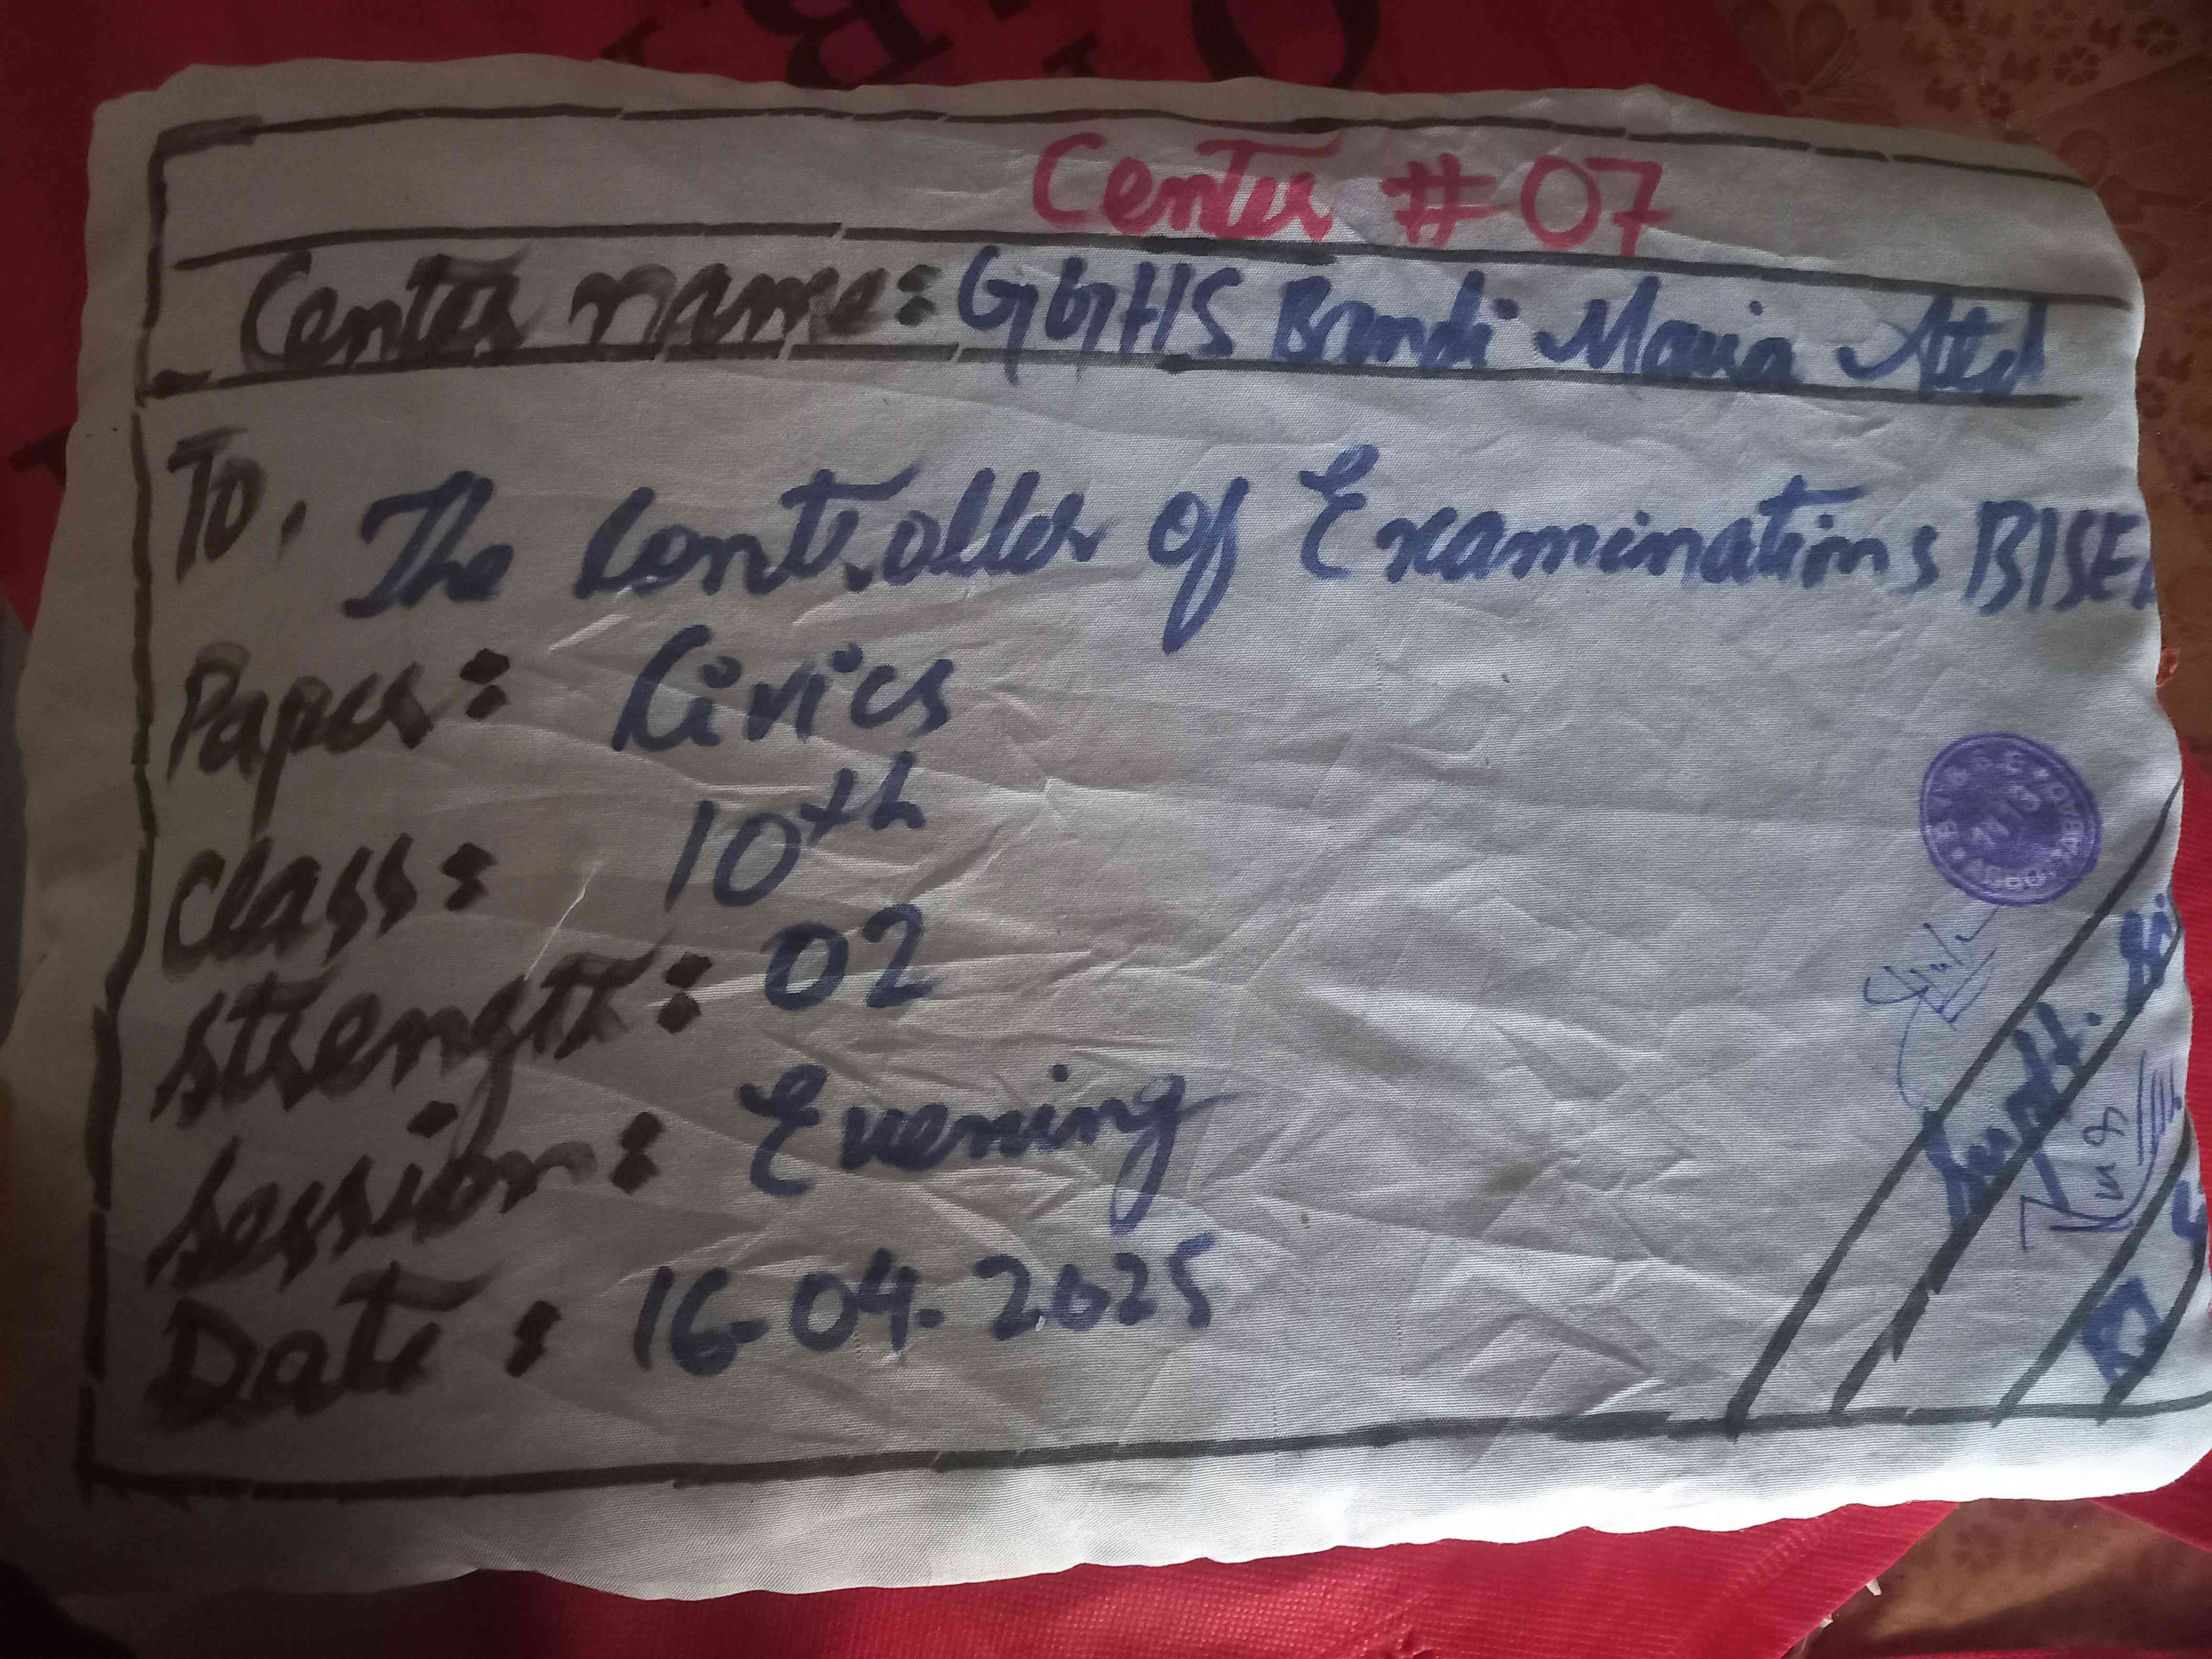 Center # 07
Center name: GGHS Bandi Maira Atd
To,
The Controller of Examinations BISE
Paper: Civics
Class: 10th
Strength: 02
Session: Evening
Date: 16-04-2025
Supdt.